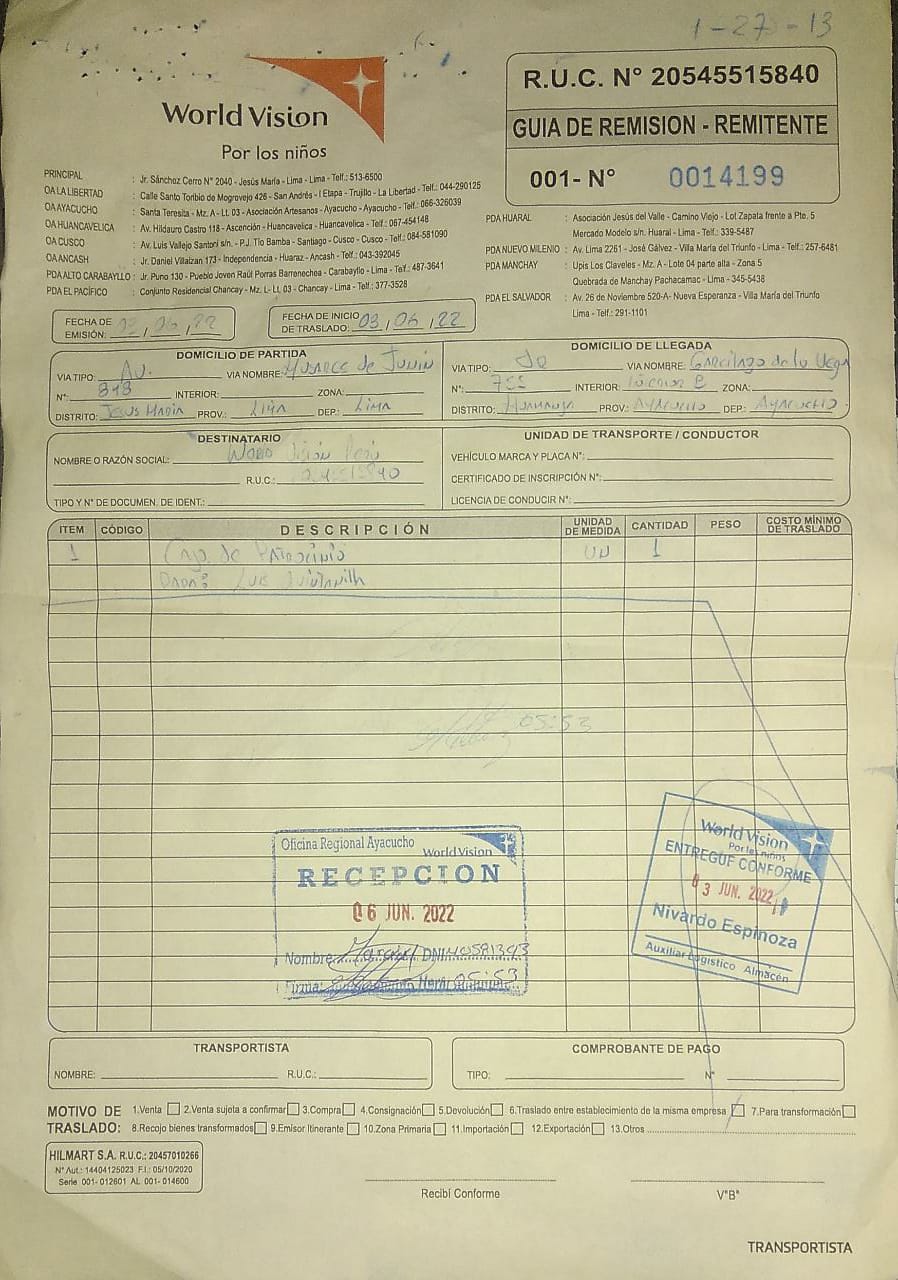 1-27-13
World Vision
Por los niños
R.U.C. N° 20545515840
GUIA DE REMISION - REMITENTE
001- N° 0014199
PRINCIPAL : Jr. Sánchez Cerro N° 2040 - Jesús María - Lima - Lima - Telf.: 513-6500
OA LA LIBERTAD : Calle Santo Toribio de Mogrovejo 426 - San Andrés - I Etapa - Trujillo - La Libertad - Telf.: 044-290125
OA AYACUCHO : Santa Teresita - Mz. A - Lt. 03 - Asociación Artesanos - Ayacucho - Ayacucho - Telf.: 066-326039
OA HUANCAVELICA : Av. Hildauro Castro 118 - Ascención - Huancavelica - Huancavelica - Telf.: 067-454148
OA CUSCO : Av. Luis Vallejo Santoni s/n. - P.J. Tío Bamba - Santiago - Cusco - Cusco - Telf.: 084-581090
OA ANCASH : Jr. Daniel Villaizan 173 - Independencia - Huaraz - Ancash - Telf.: 043-392045
PDA ALTO CARABAYLLO : Jr. Puno 130 - Pueblo Joven Raúl Porras Barrenechea - Carabayllo - Lima - Telf.: 487-3641
PDA EL PACÍFICO : Conjunto Residencial Chancay - Mz. L - Lt. 03 - Chancay - Lima - Telf.: 377-3528
PDA HUARAL : Asociación Jesús del Valle - Camino Viejo - Lot Zapata frente a Pte. 5
Mercado Modelo s/n. Huaral - Lima - Telf.: 339-5487
PDA NUEVO MILENIO : Av. Lima 2261 - José Gálvez - Villa María del Triunfo - Lima - Telf.: 257-6481
PDA MANCHAY : Upis Los Claveles - Mz. A - Lote 04 parte alta - Zona 5
Quebrada de Manchay Pachacamac - Lima - 345-5438
PDA EL SALVADOR : Av. 26 de Noviembre 520-A - Nueva Esperanza - Villa María del Triunfo
Lima - Telf.: 291-1101
FECHA DE EMISIÓN: 03, 06, 22
FECHA DE INICIO DE TRASLADO: 03, 06, 22
DOMICILIO DE PARTIDA
VIA TIPO: Av. VIA NOMBRE: Husares de Junin
N°: 848 INTERIOR: ZONA:
DISTRITO: Jesus Maria PROV.: Lima DEP.: Lima
DOMICILIO DE LLEGADA
VIA TIPO: JR VIA NOMBRE: Garcilazo de la Vega
N°: 755 INTERIOR: Interior B ZONA:
DISTRITO: Huamanga PROV.: Ayacucho DEP.: Ayacucho
DESTINATARIO
NOMBRE O RAZÓN SOCIAL: World Vision Perú
R.U.C.: 20545515840
TIPO Y N° DE DOCUMEN. DE IDENT.:
UNIDAD DE TRANSPORTE / CONDUCTOR
VEHÍCULO MARCA Y PLACA N°:
CERTIFICADO DE INSCRIPCIÓN N°:
LICENCIA DE CONDUCIR N°:
ITEM CÓDIGO DESCRIPCIÓN UNIDAD DE MEDIDA CANTIDAD PESO COSTO MÍNIMO DE TRASLADO
1 Caja de Patrocinio UN 1
Para: Luis Quintanilla
05:53
Oficina Regional Ayacucho World Vision
RECEPCION
06 JUN. 2022
Nombre: DNI
Firma: Hora: 05:53
World Vision
Por los niños
ENTREGUE CONFORME
03 JUN. 2022
Nivardo Espinoza
Auxiliar Logístico Almacén
TRANSPORTISTA
NOMBRE: R.U.C.:
COMPROBANTE DE PAGO
TIPO: N°
MOTIVO DE TRASLADO: 1.Venta 2.Venta sujeta a confirmar 3.Compra 4.Consignación 5.Devolución 6.Traslado entre establecimiento de la misma empresa 7.Para transformación
8.Recojo bienes transformados 9.Emisor Itinerante 10.Zona Primaria 11.Importación 12.Exportación 13.Otros
HILMART S.A. R.U.C.: 20457010266
N° Aut.: 14404125023 F.I.: 05/10/2020
Serie 001- 012601 AL 001- 014600
Recibí Conforme
V°B°
TRANSPORTISTA